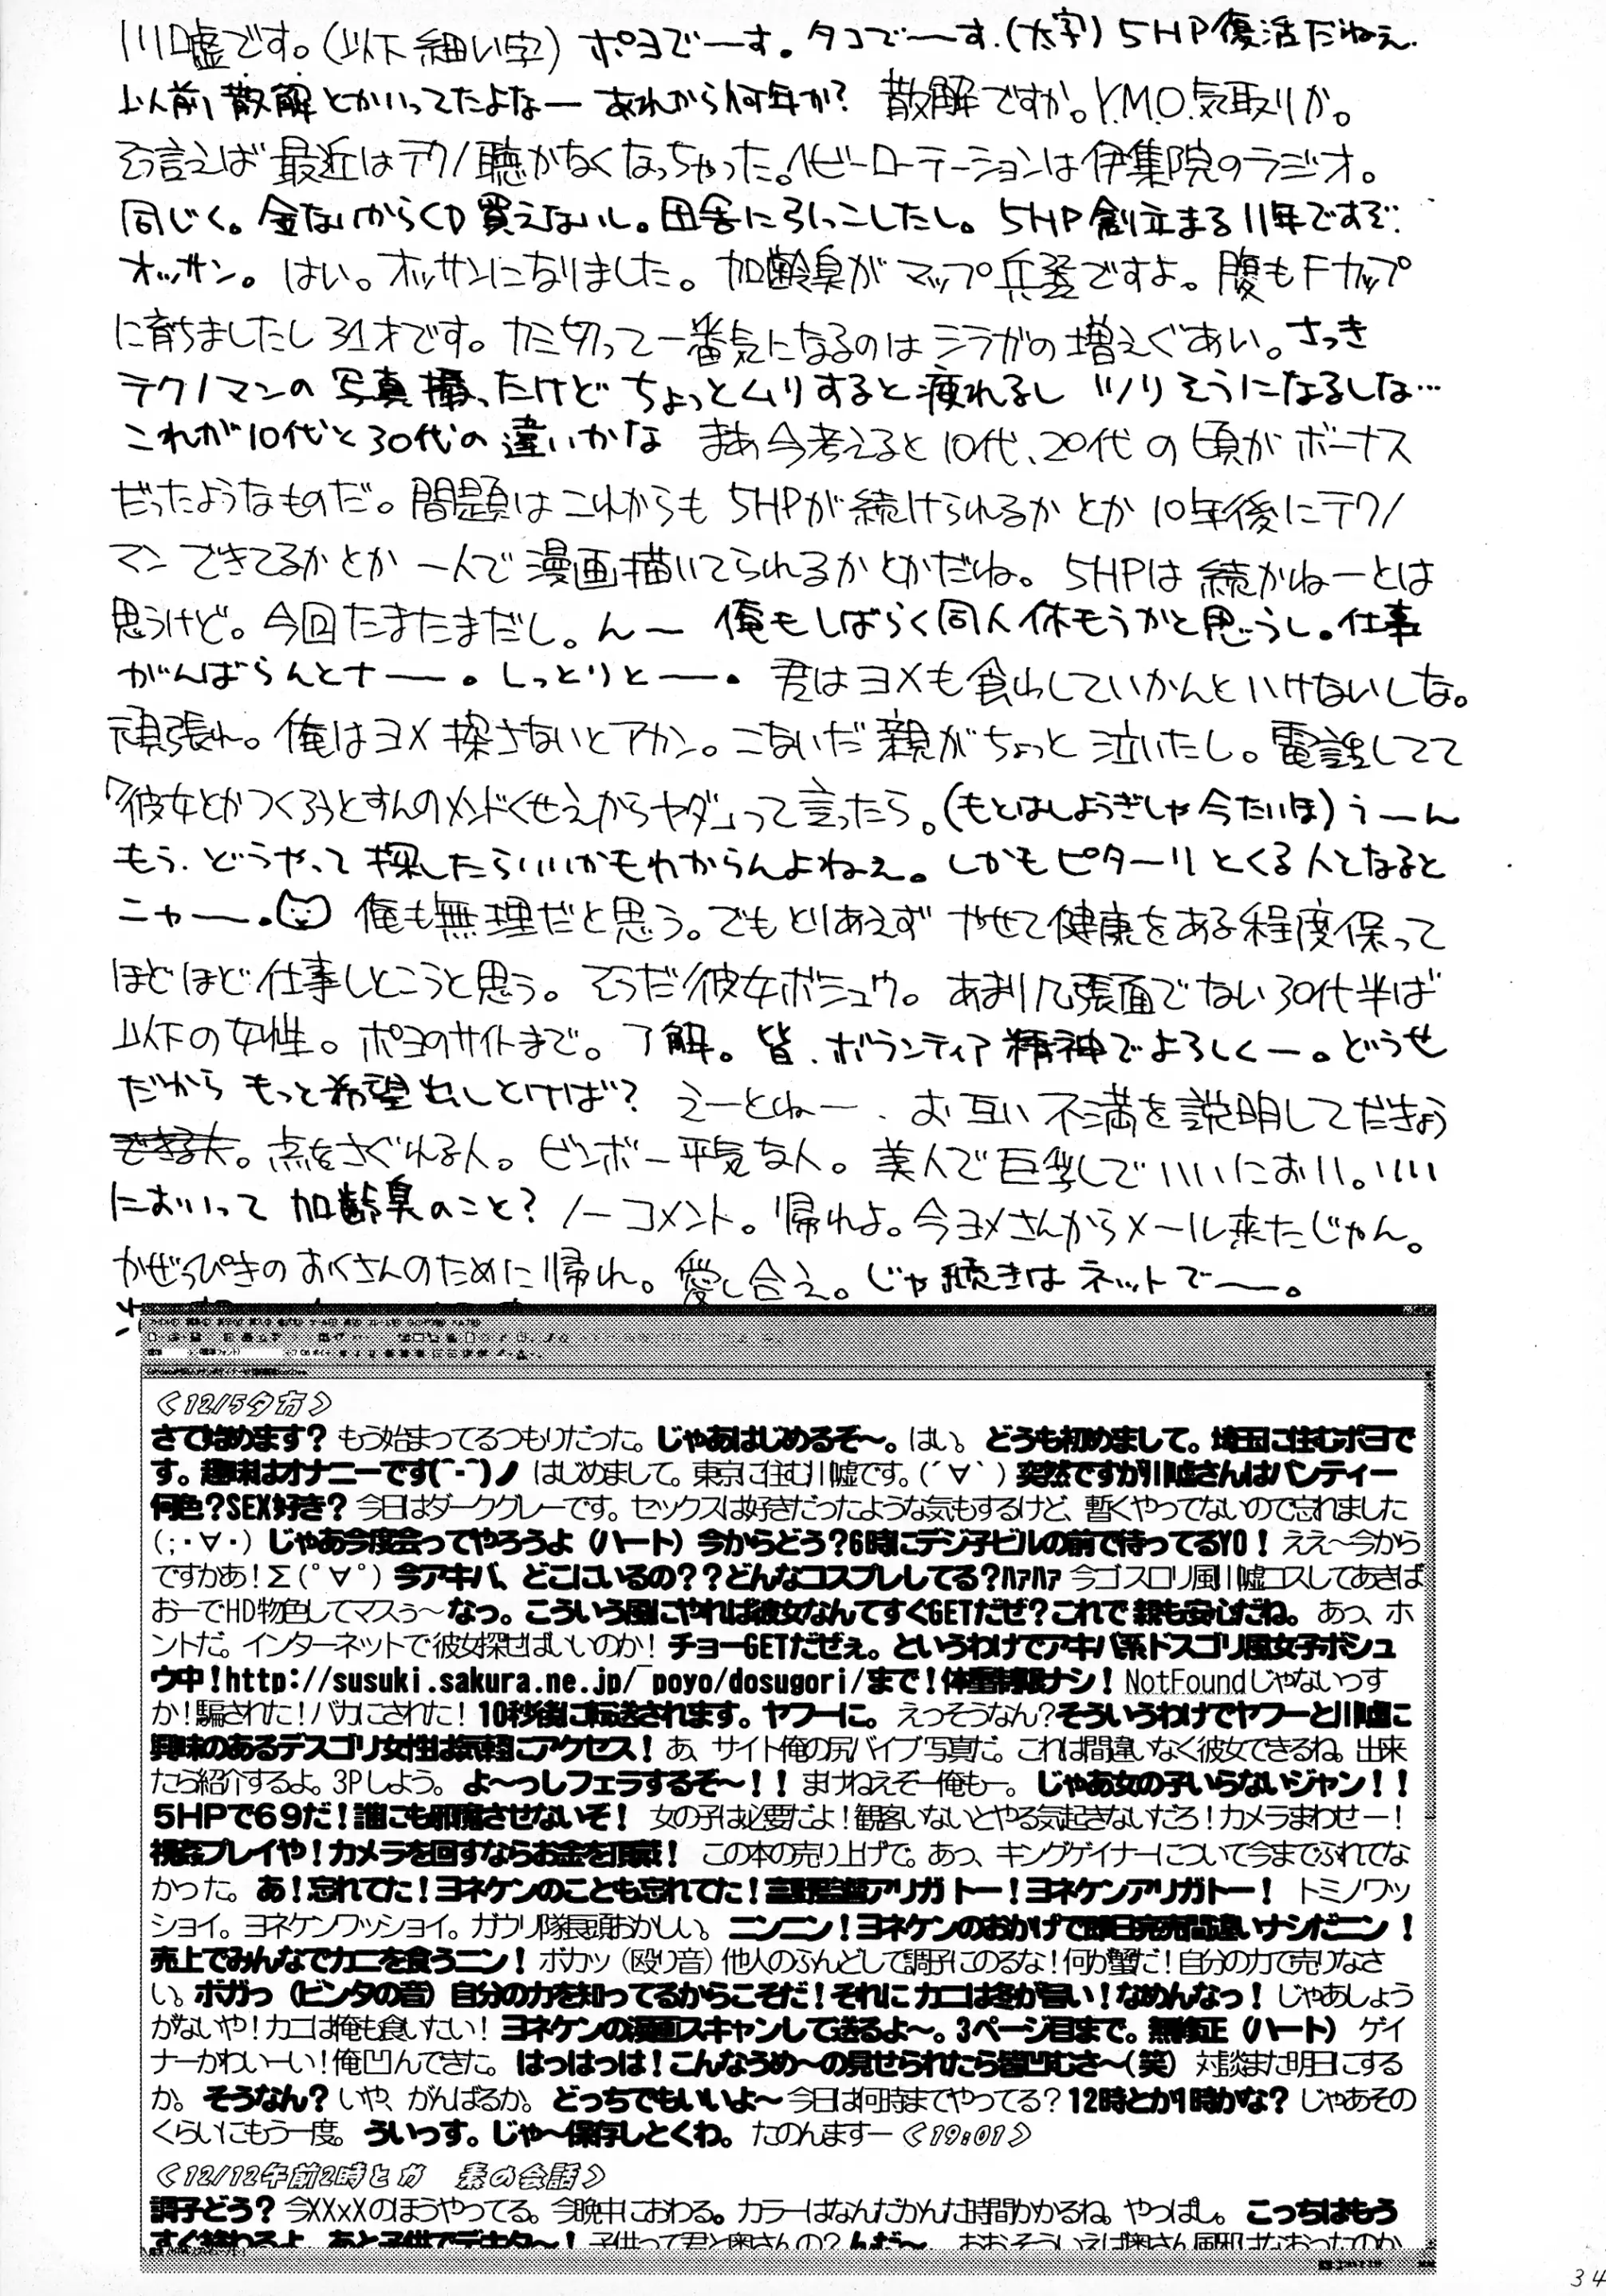 川嘘です。(以下細い字) ポヨでーす。タコでーす.(太字) 5HP復活だねぇ.
以前散解とかいってたよなー あれから何年か? 散解ですか。Y.M.O.気取りか。
そう言えば最近はテクノ聴かなくなっちゃった。ヘビーローテーションは伊集院のラジオ。
同じく。金ないからCD買えないし。田舎に引っこしたし。5HP創立まる11年ですぞ.
オッサン。はい。オッサンになりました。加齢臭がマップ兵器ですよ。腹もFカップ
に育ちましたし31才です。カミ切って一番気になるのはシラガの増えぐあい。さっき
テクノマンの写真撮ったけどちょっとムリすると疲れるしツリそうになるしな…
これが10代と30代の違いかな まあ今考えると10代、20代の頃がボーナス
だったようなものだ。問題はこれからも5HPが続けられるかとか10年後にテクノ
マンできてるかとか一人で漫画描いてられるかとかだね。5HPは続かねーとは
思うけど。今回たまたまだし。んー 俺もしばらく同人休もうかと思うし。仕事
がんばらんとナー。しっとりとー。君はヨメも食わしていかんといけないしな。
頑張れ。俺はヨメ探さないとアカン。こないだ親がちょっと泣いたし。電話してて
「彼女とかつくろうとすんのメンドくせえからヤダ」って言ったら。(もとはしようぎしゃ今たいほ) うーん
もう.どうやって探したらいいかもわからんよねぇ。しかもピターリとくる人となると
ニャー. 俺も無理だと思う。でもとりあえずやせて健康をある程度保って
ほどほど仕事しとこうと思う。そうだ彼女ボシュウ。あまり几張面でない30代半ば
以下の女性。ポヨのサイトまで。了解。皆.ボランティア精神でよろしくー。どうせ
だから もっと希望出しとけば? えーとねー、お互い不満を説明してだきょう
点をさぐれる人。ビンボー平気な人。美人で巨乳でいいにおい。いい
においって加齢臭のこと? ノーコメント。帰れよ。今ヨメさんからメール来たじゃん。
かぜっぴきのおくさんのために帰れ。愛し合え。じゃ続きはネットでー。
<12/5夕方>
さて始めます? もう始まってるつもりだった。じゃあはじめるぞ~。はい。どうも初めまして。埼玉に住むポヨで
す。趣味はオナニーです(^-^)ノ はじめまして。東京に住む川嘘です。(´∀`) 突然ですが川嘘さんはパンティー
何色?SEX好き? 今日はダークグレーです。セックスは好きだったような気もするけど、暫くやってないので忘れました
(;・∀・) じゃあ今度会ってやろうよ(ハート) 今からどう?6時にデジ子ビルの前で待ってるYO! ええ~今から
ですかあ!Σ(゚∀゚) 今アキバ、どこにいるの??どんなコスプレしてる?ハァハァ 今ゴスロリ風川嘘コスしてあきば
おーでHD物色してマスぅ~ なっ。こういう風にやれば彼女なんてすぐGETだぜ?これで親も安心だね。あっ、ホ
ントだ。インターネットで彼女探せばいいのか! チョーGETだぜぇ。というわけでアキバ系ドスゴリ風女子ボシュ
ウ中!http://susuki.sakura.ne.jp/~poyo/dosugori/まで!体重制限ナシ! NotFoundじゃないっす
か!騙された!バカにされた! 10秒後に転送されます。ヤフーに。えっそうなん?そういうわけでヤフーと川嘘に
興味のあるデスゴリ女性は気軽にアクセス! あ、サイト俺の尻バイブ写真だ。これは間違いなく彼女できるね。出来
たら紹介するよ。3Pしよう。よ~っしフェラするぞ~!! まけねえぞー俺もー。じゃあ女の子いらないジャン!!
5HPで69だ!誰にも邪魔させないぞ! 女の子は必要だよ!観客いないとやる気起きないだろ!カメラまわせー!
視姦プレイや!カメラを回すならお金を頂戴! この本の売り上げで。あっ、キングゲイナーについて今までふれてな
かった。あ!忘れてた!ヨネケンのことも忘れてた!富野監督アリガトー!ヨネケンアリガトー! トミノワッ
ショイ。ヨネケンワッショイ。ガウリ隊長頭おかしい。ニンニン!ヨネケンのおかげで即日完売間違いナシだニン!
売上でみんなでカニを食うニン! ボカッ(殴り音)他人のふんどしで調子にのるな!何が蟹だ!自分の力で売りなさ
い。ボガっ(ビンタの音) 自分の力を知ってるからこそだ!それにカニは冬が旨い!なめんなっ! じゃあしょう
がないや!カニは俺も食いたい! ヨネケンの漫画スキャンして送るよ~。3ページ目まで。無修正(ハート) ゲイ
ナーかわいーい!俺凹んできた。はっはっは!こんなうめ~の見せられたら皆凹むさ~(笑) 対談また明日にする
か。そうなん? いや、がんばるか。どっちでもいいよ~ 今日は何時までやってる? 12時とか1時かな? じゃあその
くらいにもう一度。ういっす。じゃ~保存しとくわ。たのんますー <19:01>
<12/12午前2時とか 素の会話>
調子どう? 今XXxXのほうやってる。今晩中におわる。カラーはなんだかんだ時間かかるね。やっぱし。こっちはもう
すぐ終わるよ。あと子供でデキタ~! 子供って君と奥さんの? んだ~。おおそういえば奥さん風邪はなおったのか
34